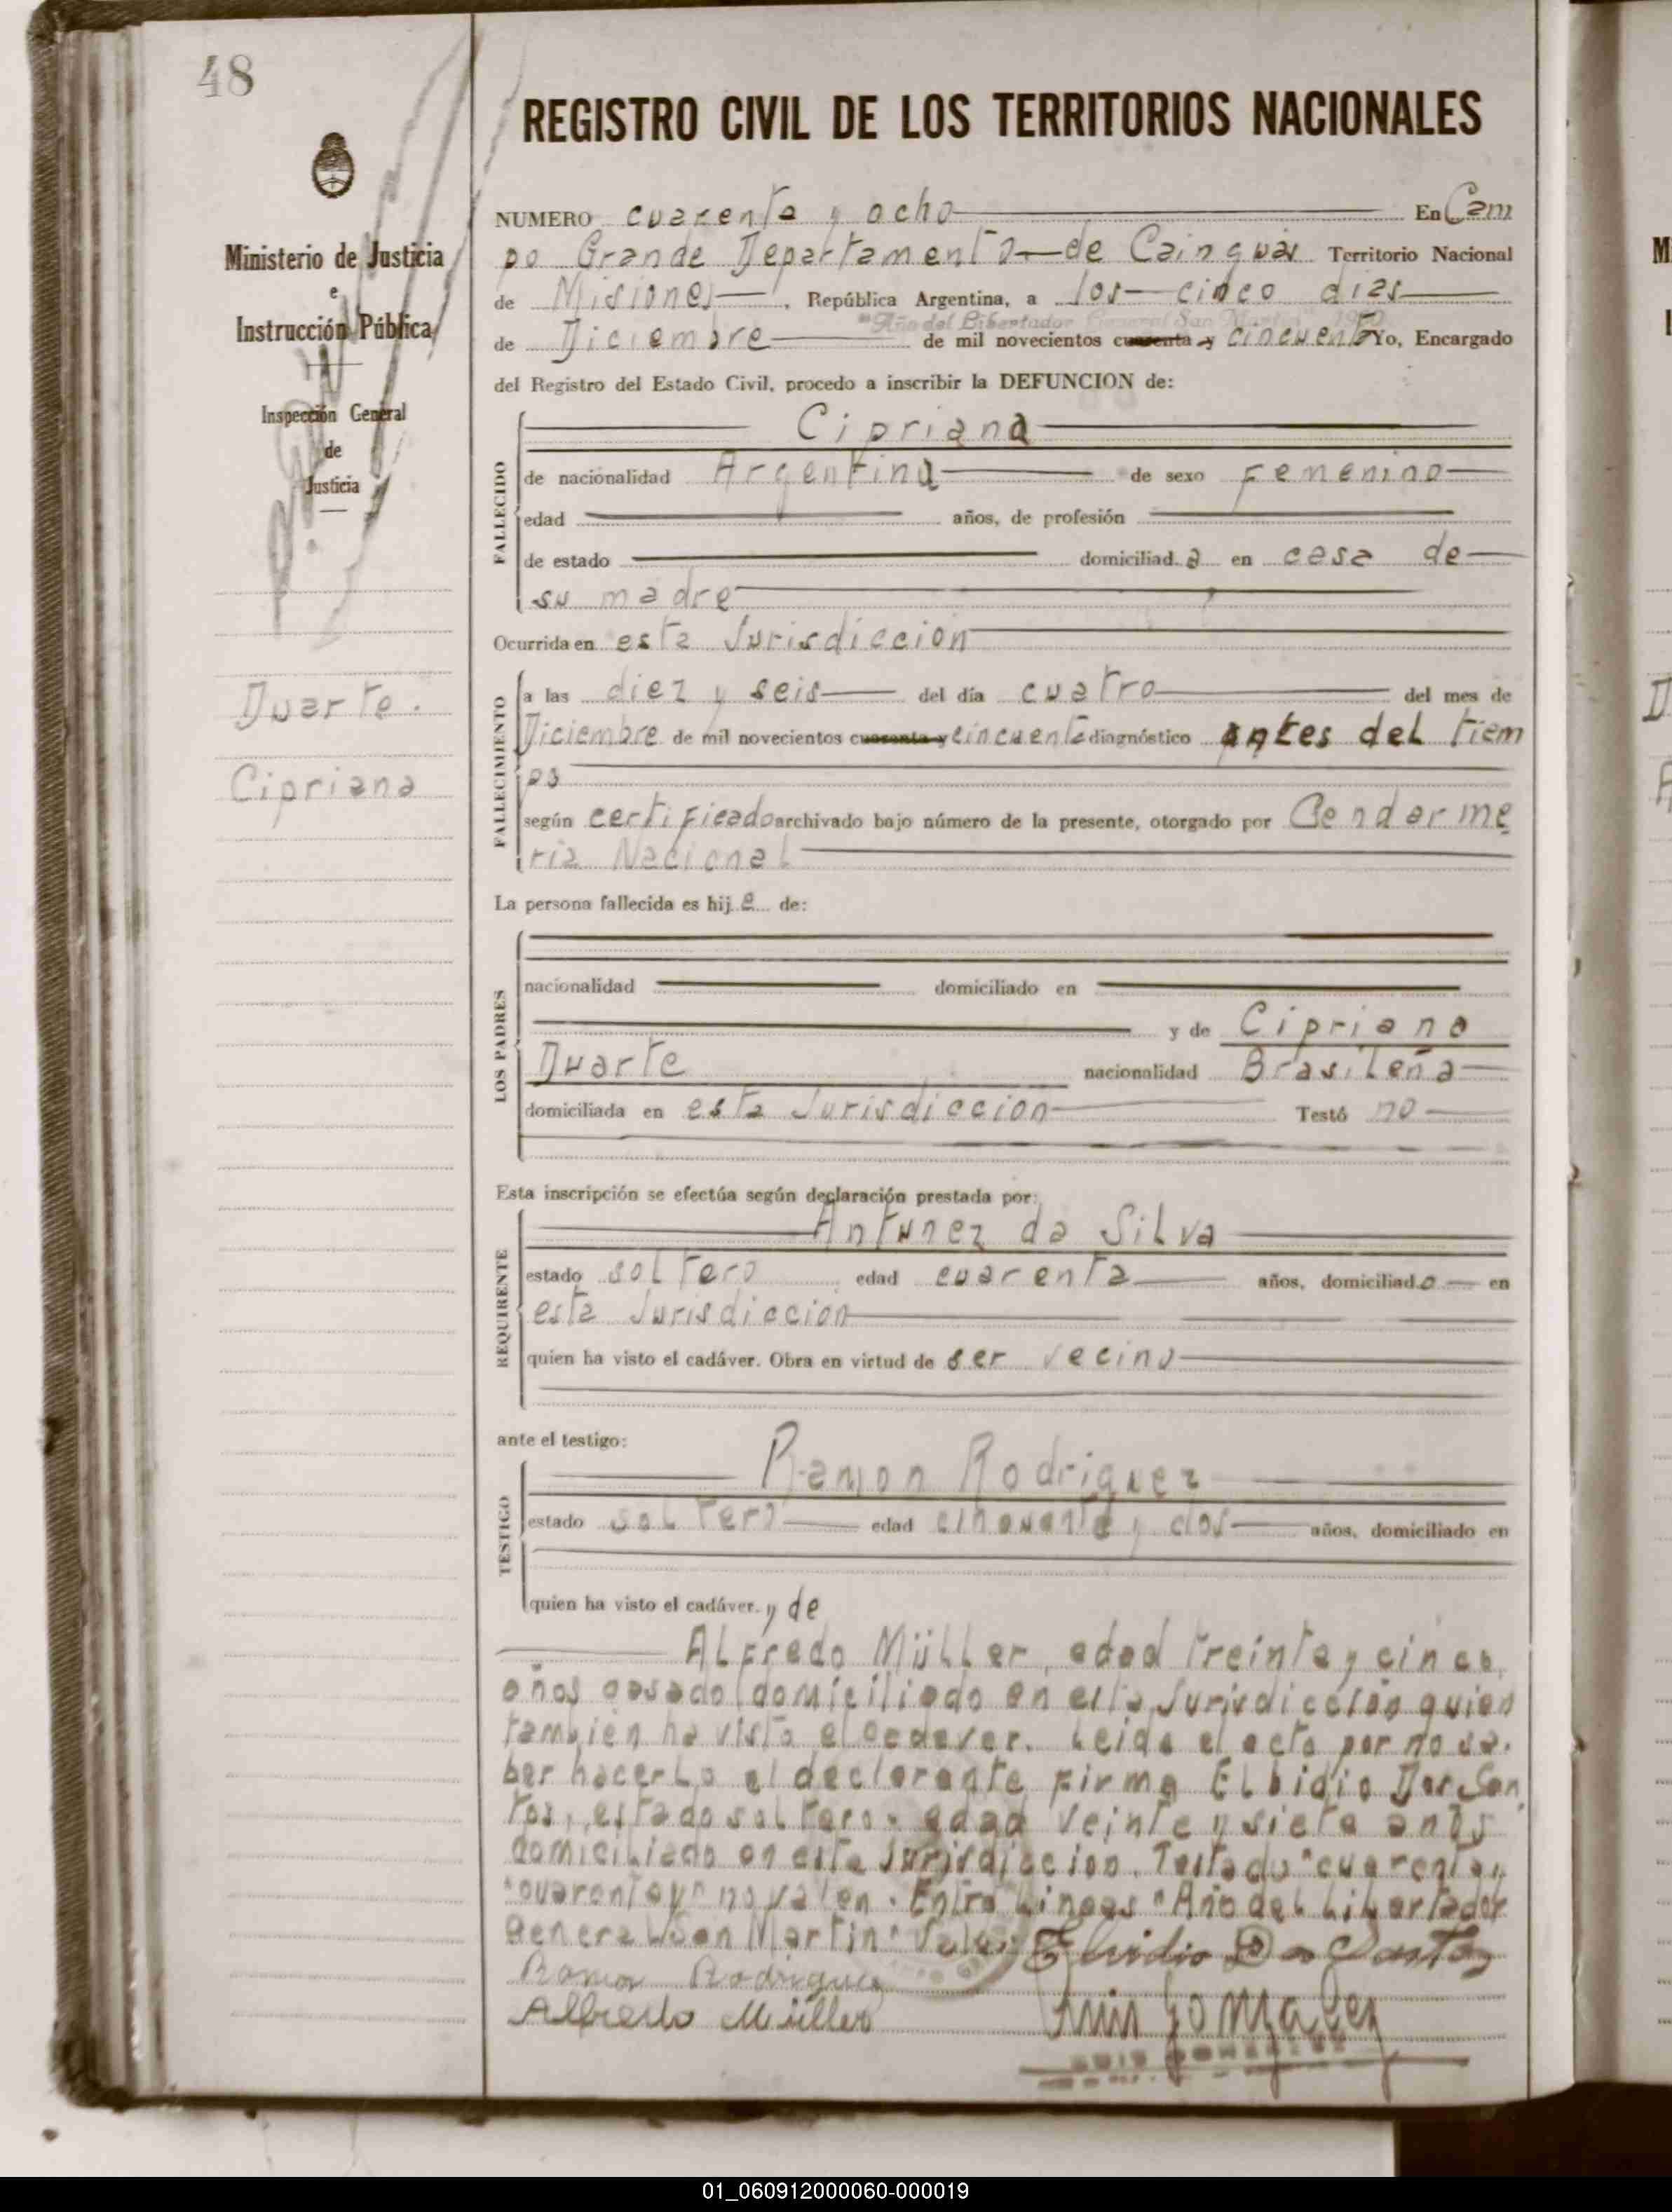 48
REGISTRO CIVIL DE LOS TERRITORIOS NACIONALES
Ministerio de Justicia
e
Instrucción Pública
Inspección General
de
Justicia
Duarte.
Cipriana
NUMERO cuarenta y ocho En Cam
po Grande Departamento de Cainguás Territorio Nacional
de Misiones, República Argentina, a los cinco dias
"Año del Libertador General San Martín" 1950
de Diciembre de mil novecientos cuarenta y cincuenta Yo, Encargado
del Registro del Estado Civil, procedo a inscribir la DEFUNCION de:
FALLECIDO
Cipriana
de nacionalidad Argentina de sexo Femenino
edad años, de profesión
de estado domiciliad a en casa de
su madre
Ocurrida en esta Jurisdiccion
FALLECIMIENTO
a las diez y seis del día cuatro del mes de
Diciembre de mil novecientos cuarenta y cincuenta diagnóstico antes del tiem
po
según certificado archivado bajo número de la presente, otorgado por Gendarme
ria Nacional
La persona fallecida es hij a de:
LOS PADRES
nacionalidad domiciliado en
y de Cipriana
Duarte nacionalidad Brasileña
domiciliada en esta Jurisdiccion Testó no
Esta inscripción se efectúa según declaración prestada por:
REQUIRENTE
Antunez da Silva
estado soltero edad cuarenta años, domiciliad o en
esta Jurisdiccion
quien ha visto el cadáver. Obra en virtud de ser vecino
ante el testigo:
TESTIGO
Ramon Rodriguez
estado soltero edad cincuenta y dos años, domiciliado en
quien ha visto el cadáver. y de
Alfredo Müller, edad treinta y cinco
años casado domiciliado en esta Jurisdiccion quien
tambien ha visto el cadaver. Leida el acta por no sa-
ber hacerlo el declarante firma Elbidio Dos San
tos, estado soltero, edad veinte y siete años
domiciliado en esta Jurisdiccion. Testado "cuarenta y"
"cuarenta y" no valen. Entre Lineas "Año del Libertador
General San Martin" Vale.
Elbidio Dos Santos
Ramon Rodriguez
Alfredo Müller
Luis Gonzalez
LUIS GONZALEZ
01_060912000060-000019